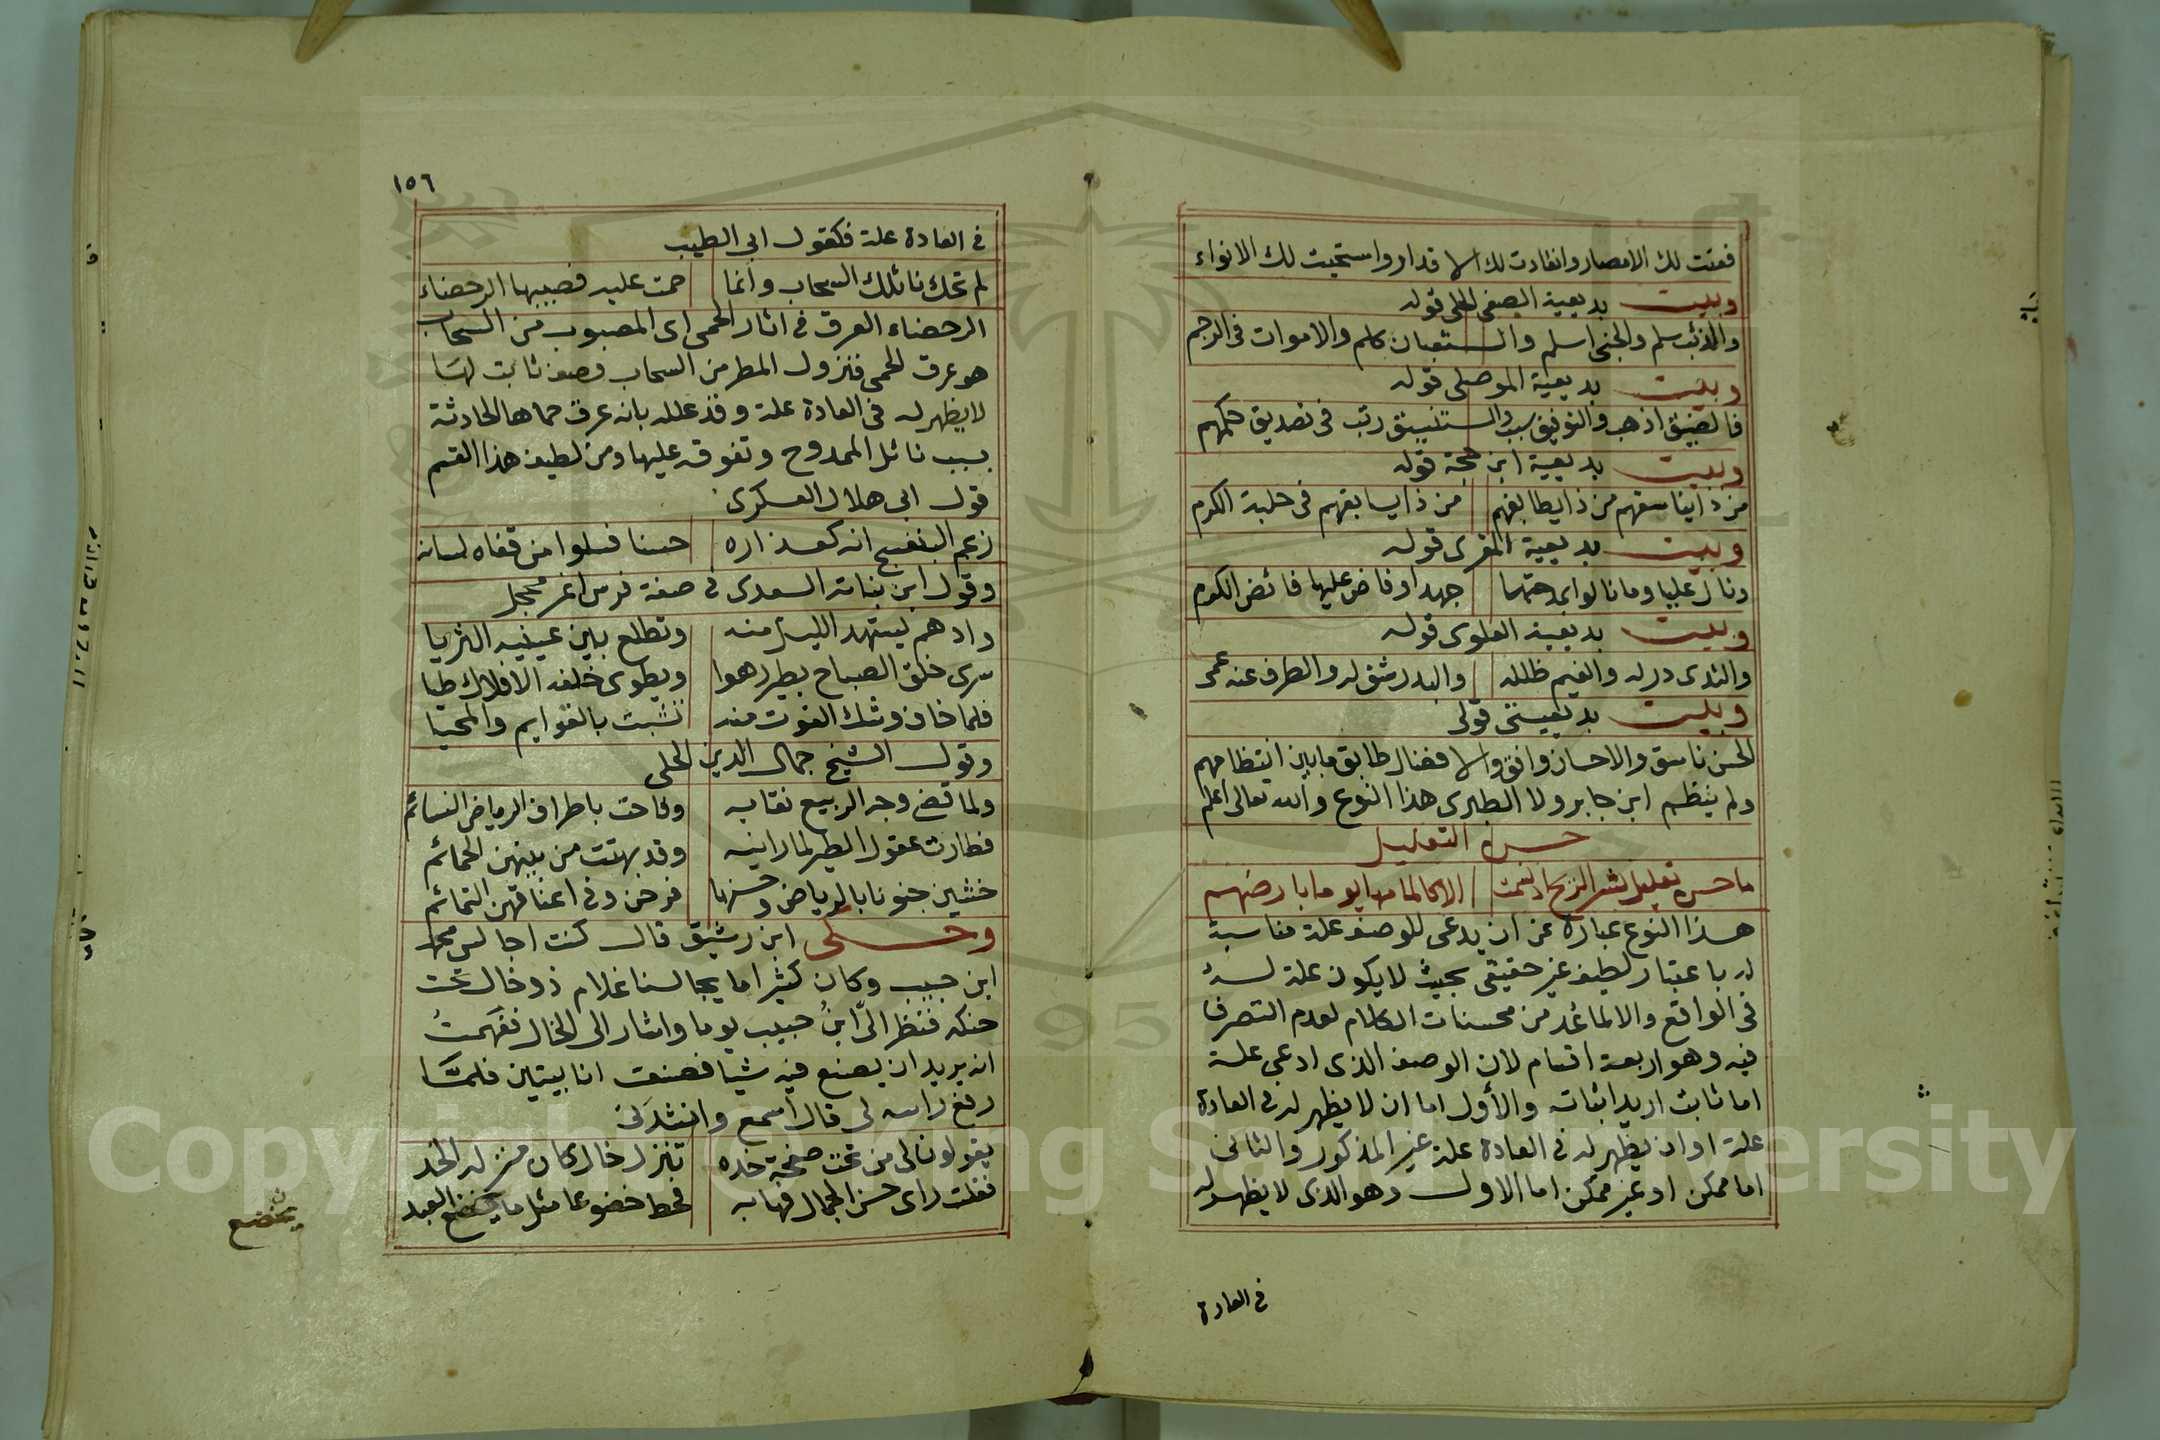 فعنت لك الامصار وانقادت لك الاقدار واستحيت لك الانواء
وبيت بديعية الصفي الحلي قوله
والذئب سلم والجني اسلم والثعبان كلم والاموات في الرجم
وبيت بديعية الموصلي قوله
وبيت بديعية ابن حجة قوله
من ذا يناسقهم من ذا يطابقهم من ذا يسابقهم في حلبة الكرم
وبيت بديعية المقري قوله
ونال عليا وما نالوا جهدا وفاض عليها فائض الكرم
وبيت بديعية العلوي قوله
والثدي در له والغيم ظلله والبدر شق له والطرف عنه عمى
وبيت بديعيتي قولي
الحسن ناسق والاحسان وافق والافضال طابق ما بين انتظامهم
ولم ينظم ابن جابر ولا الطبري هذا النوع والله تعالى اعلم
حسن التعليل
ما حسن تعليل نشر الريح اذ نسمت الا لالمامها يوما بارضهم
هذا النوع عبارة عن ان يدعى للوصف علة مناسبة
له باعتبار لطيف غير حقيقي بحيث لا يكون علة له
في الواقع والا لما عد من محسنات الكلام لعدم التصرف
فيه وهو اربعة اقسام لان الوصف الذي ادعي علة
اما ثابت اريد اثباته والأول اما ان لا يظهر له في العادة
علة او ان يظهر له في العادة علة غير المذكور والثاني
اما ممكن او غير ممكن اما الاول وهو الذي لا يظهر له
في العادة
١٥٦
في العادة علة فكقول ابي الطيب
لم تحك نائلك السحاب وانما حمت عليه فصبيبها الرحضاء
الرحضاء العرق في اثار الحمى اي المصبوب من السحاب
هو عرق الحمى فنزول المطر من السحاب وصف ثابت لها
لا يظهر له في العادة علة وقد علله بانه عرق حماها الحادثة
بسبب نائل الممدوح وتفوقه عليها ومن لطيف هذا القسم
قول ابي هلال العسكري
زعم البنفسج انه كعذاره حسنا فسلوا من قفاه لسانه
وقول ابن نباتة السعدي في صفة فرس اغر محجل
وادهم يستهد الليل منه وتطلع بين عينيه الثريا
سرى خلق الصباح يطير زهوا ويطوي خلفه الافلاك طيا
فلما خاف وشك الفوت منه تشبت بالقوايم والمحيا
وقول الشيخ جمال الدين الحلي
ولما نضى وجه الربيع نقابه وفاحت باطراف الرياض النسائم
فطارت عقول الطير لما راينه وقد بهتت من بينهن الحمائم
خشين جنونا بالرياض وحسنها فرحن وفي اعناقهن التمائم
وحكى ابن رشيق قال كنت اجالس محمد
ابن حبيب وكان كثيرا ما يجالسنا غلام ذو خال تحت
حنكه فنظر الىّ ابنُ حبيب يوما واشار الى الخال ففهمتُ
انه يريد ان يصنع فيه شيا فصنعت انا بيتين فلمّا
رفع راسه لي قال اسمع وانشدني
يقولون لي من تحت صفحة خده تنزل خال كان منزله الخد
فقلت راى حسن الجمال فهابه فحط خضوعا مثل ما يخضع العبد
يخضع